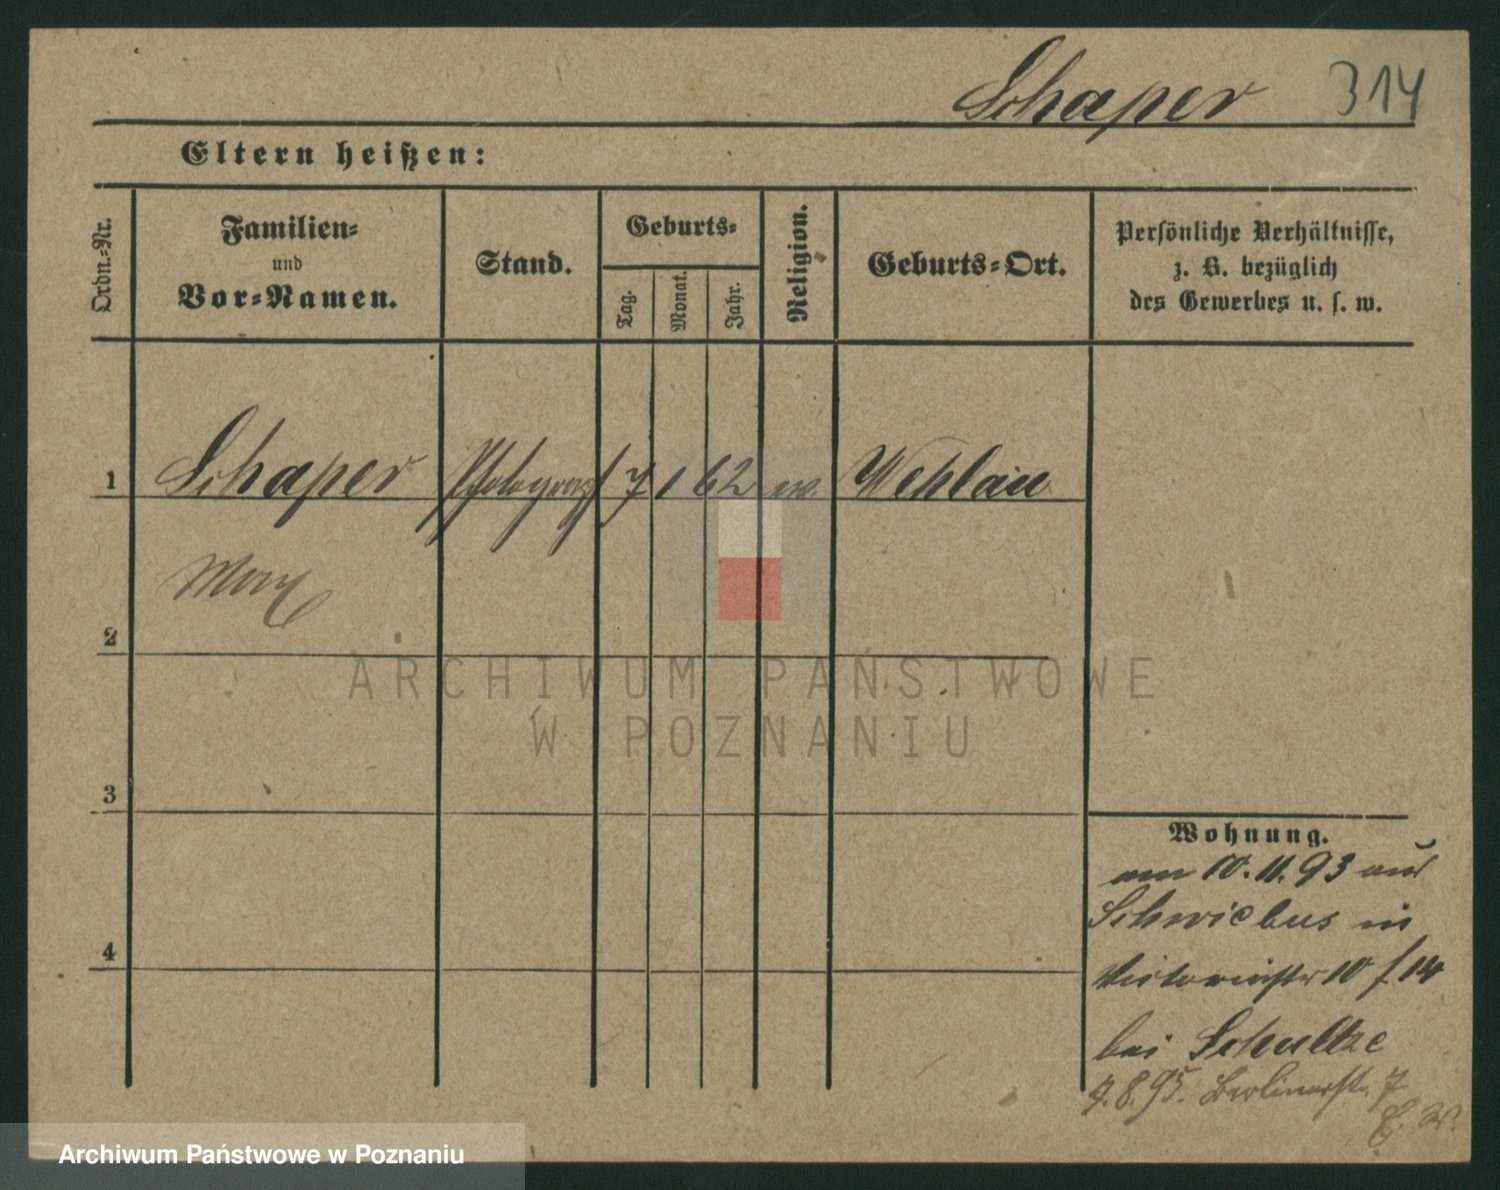 Schaper 314
Eltern heißen:
Ordn.-Nr.
Familien-
und
Vor-Namen.
Stand.
Geburts-
Tag.
Monat.
Jahr.
Religion.
Geburts-Ort.
Persönliche Verhältnisse,
z. B. bezüglich
des Gewerbes u. s. w.
1 Schaper Photograph 7 1 62 ev. Wehlau
Max
2
ARCHIWUM PAŃSTWOWE
W POZNANIU
3
4
Wohnung.
am 10.11.93 aus
Schwiebus in
Victoriastr 10
bei Schultze
7.8.95. Berlinerstr. 7
Archiwum Państwowe w Poznaniu